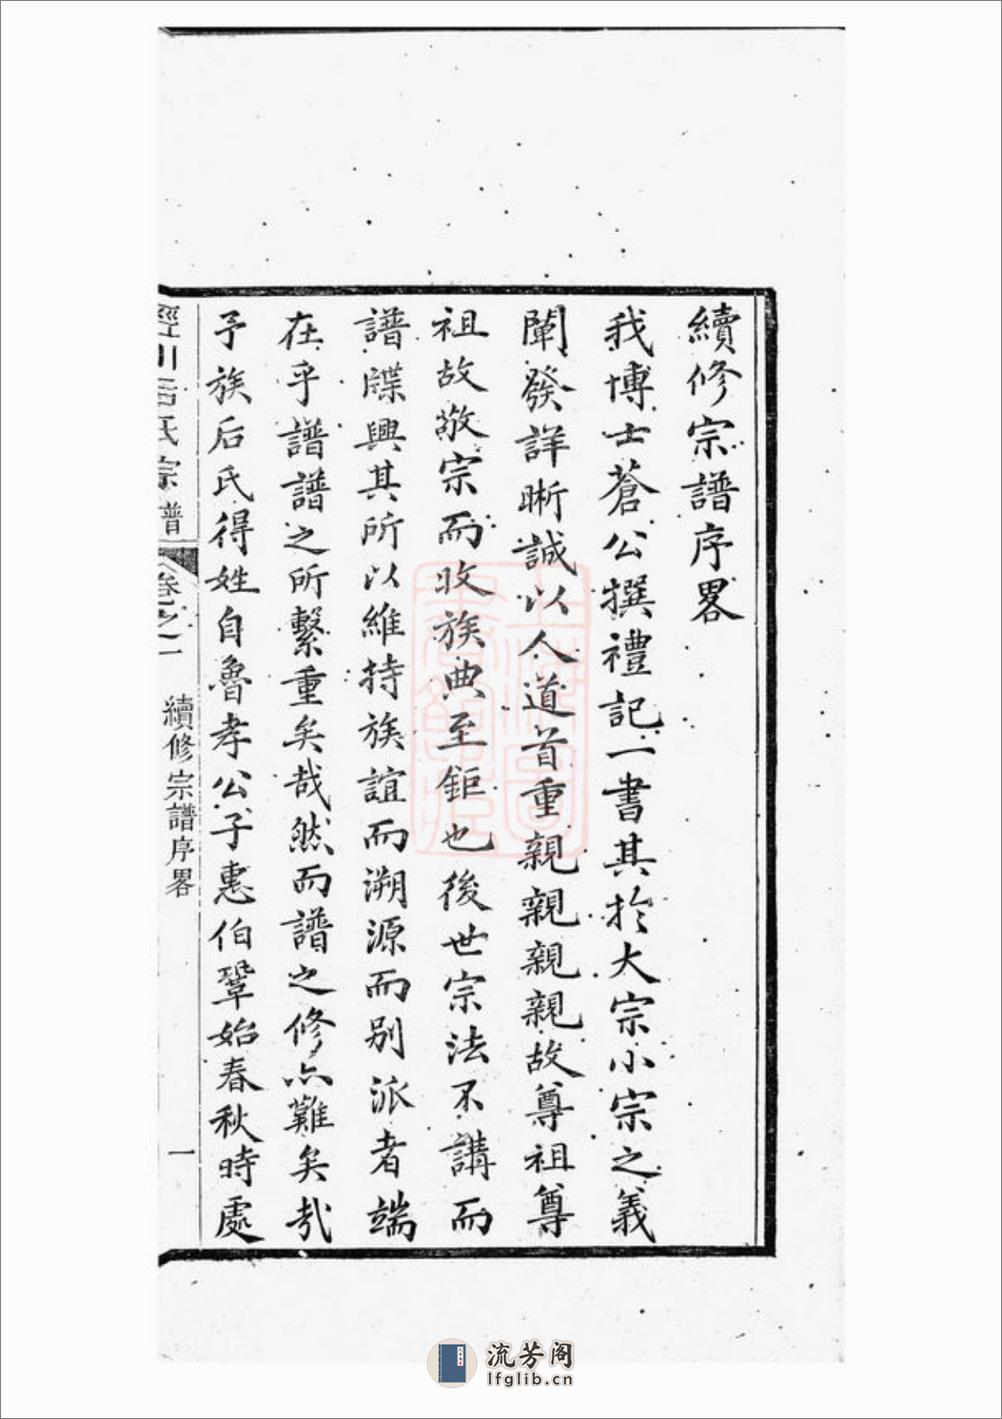 續修宗譜序畧
我博士蒼公撰禮記一書其於大宗小宗之義
闡發詳晰誠以人道首重親親親親故尊祖尊
祖故敬宗而收族典至鉅也後世宗法不講而
譜牒興其所以維持族誼而溯源而别派者端
在乎譜譜之所繫重矣哉然而譜之修亦難矣哉
予族后氏得姓自魯孝公子惠伯鞏始春秋時處
涇川后氏宗譜 卷之一 續修宗譜序畧 一
上海圖書館藏
流芳阁
lfglib.cn